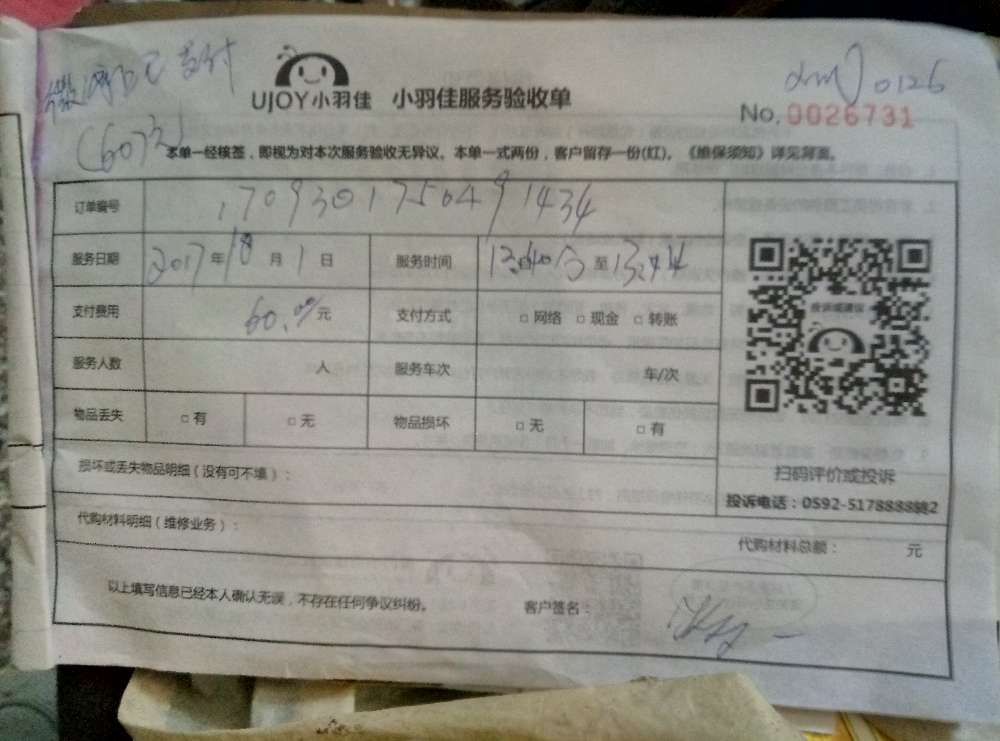 已支付
(60元)
UJOY小羽佳 小羽佳服务验收单
0126
No.0026731
本单一经核签，即视为对本次服务验收无异议。本单一式两份，客户留存一份(红)。《维保须知》详见背面。
订单编号 170930175049 1434
服务日期 2017年10月1日 服务时间 至
支付费用 60.00元 支付方式 □网络 □现金 □转账
服务人数 人 服务车次 车/次
物品丢失 □有 □无 物品损坏 □无 □有
投诉或建议
扫码评价或投诉
投诉电话：0592-5178888转2
损坏或丢失物品明细（没有可不填）：
代购材料明细（维修业务）：
代购材料总额： 元
以上填写信息已经本人确认无误，不存在任何争议纠纷。 客户签名：